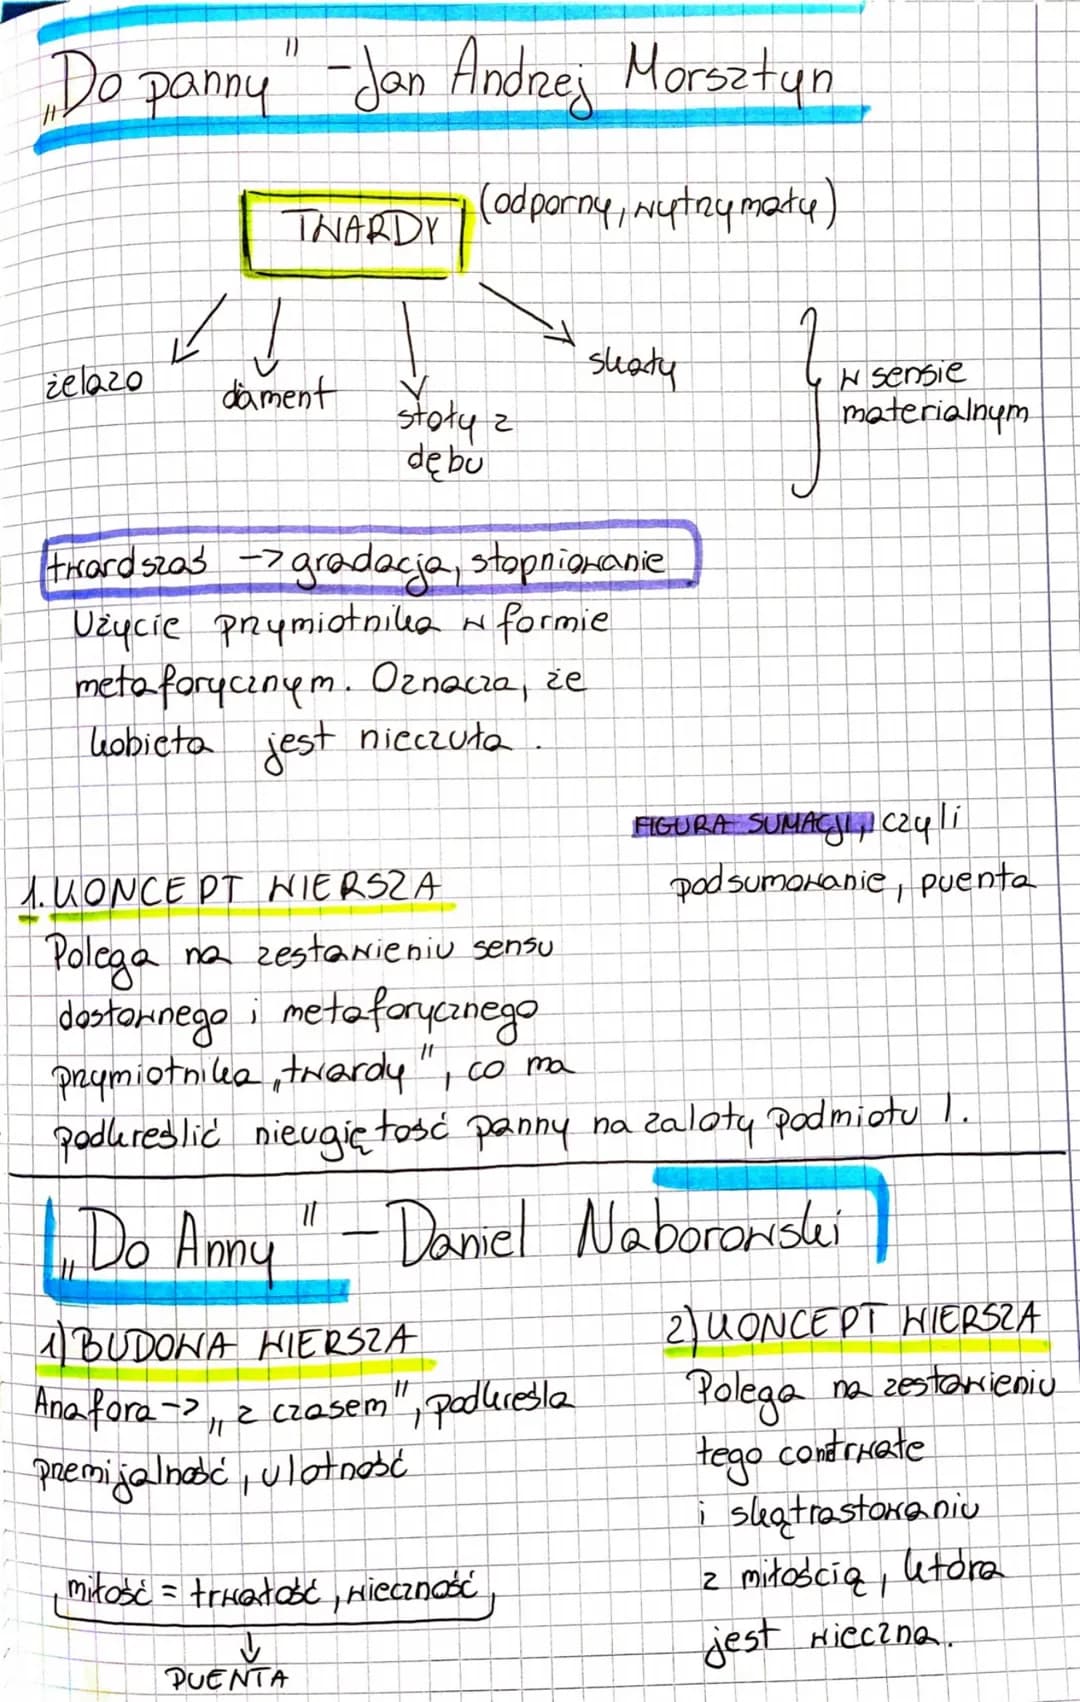 „Do panny" - Jan Andrzej Morsztyn
TWARDY (odporny, wytrzymały)
żelazo
diament
stoły z
dębu
skały
w sensie
materialnym
twardszaś -> gradacja, stopniowanie
Użycie przymiotnika w formie
metaforycznym. Oznacza, że
kobieta jest nieczuła.
FIGURA SUMACJI, czyli
podsumowanie, puenta
1. KONCEPT WIERSZA
Polega na zestawieniu sensu
dosłownego i metaforycznego
przymiotnika „twardy", co ma
podkreślić nieugiętość panny na zaloty podmiotu l.
„Do Anny" - Daniel Naborowski
1) BUDOWA WIERSZA
Anafora -> „z czasem", podkreśla
przemijalność, ulotność
miłość = trwałość, wieczność
PUENTA
2) KONCEPT WIERSZA
Polega na zestawieniu
tego co
i skątrastowaniu
z miłością, która
jest wieczna.